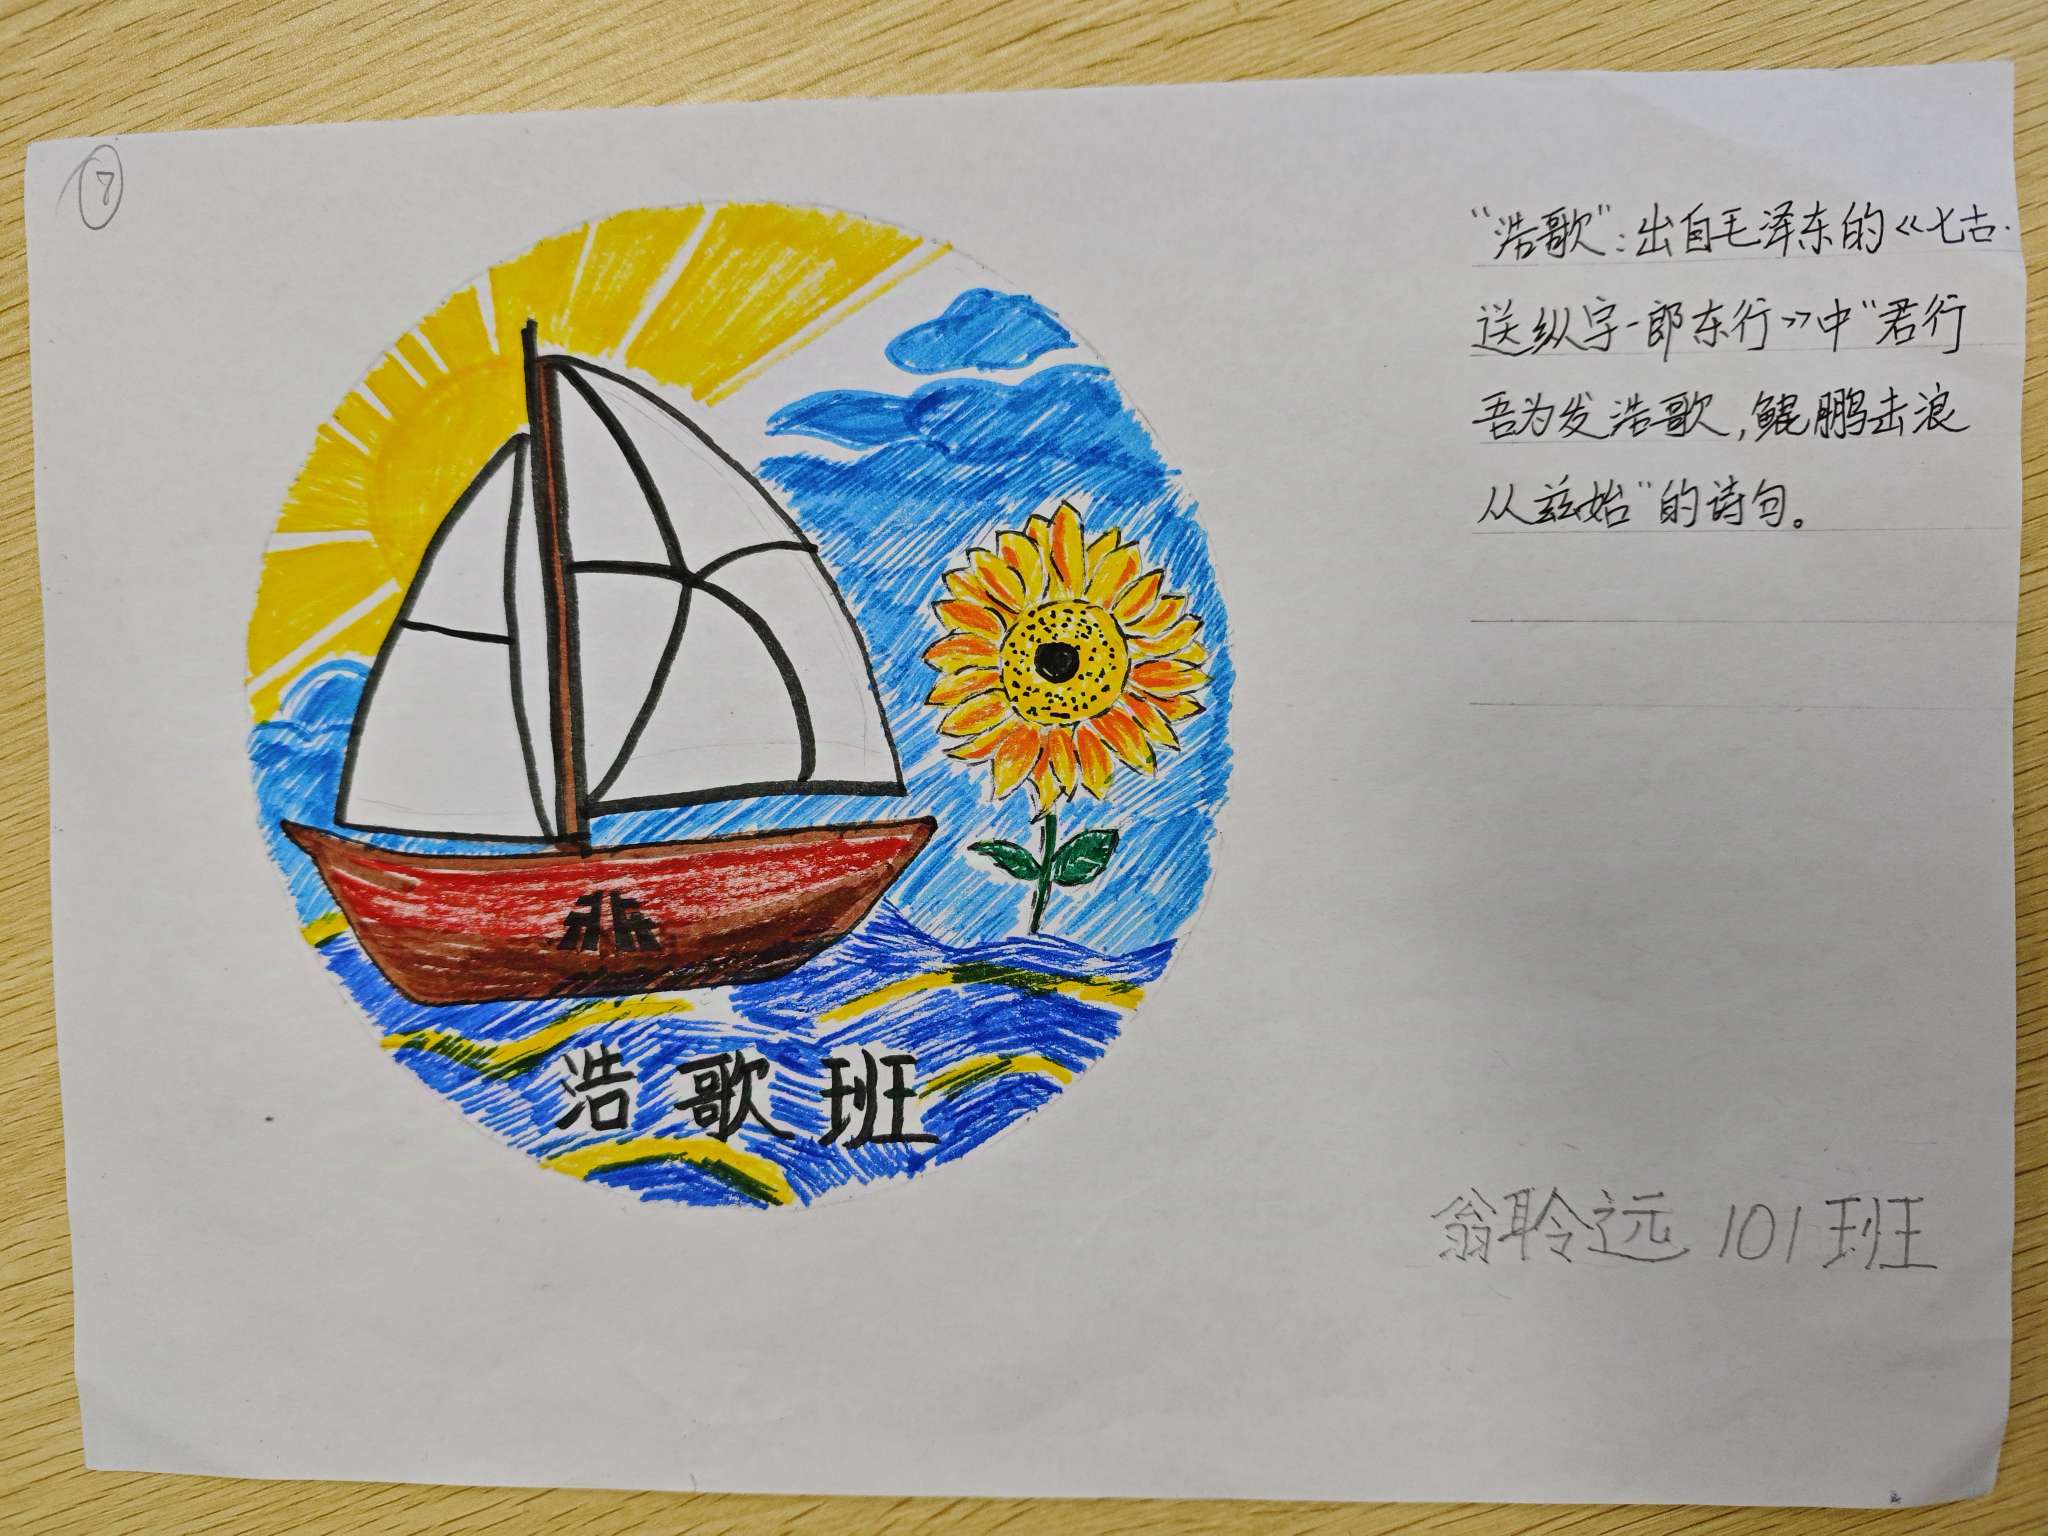 7
“浩歌”：出自毛泽东的《七古·
送纵宇一郎东行》中“君行
吾为发浩歌，鲲鹏击浪
从兹始”的诗句。
浩歌班
翁聆远 101班